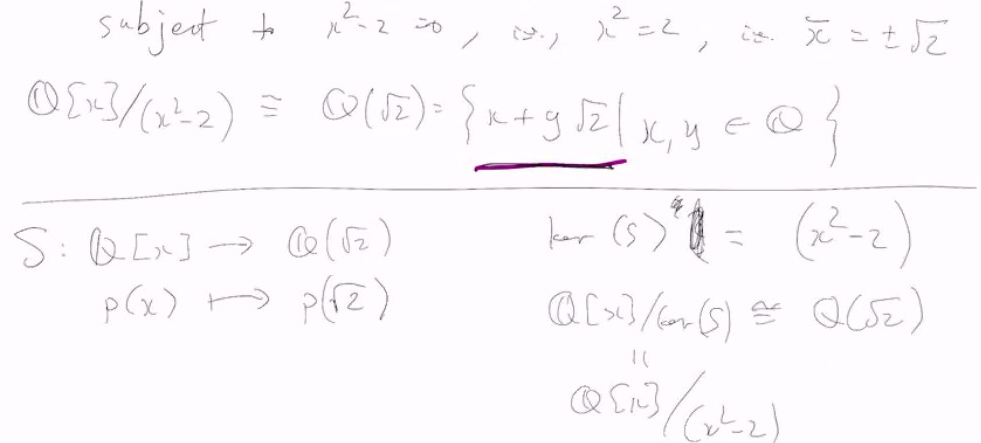 subject to x²-2=0, i.e., x²=2, i.e. x̄ = ±√2
Q[x]/(x²-2) ≅ Q(√2) = {x+y√2 | x, y ∈ Q}
S: Q[x] → Q(√2)
p(x) ↦ p(√2)
ker(S) = (x²-2)
Q[x]/ker(S) ≅ Q(√2)
||
Q[x]/(x²-2)